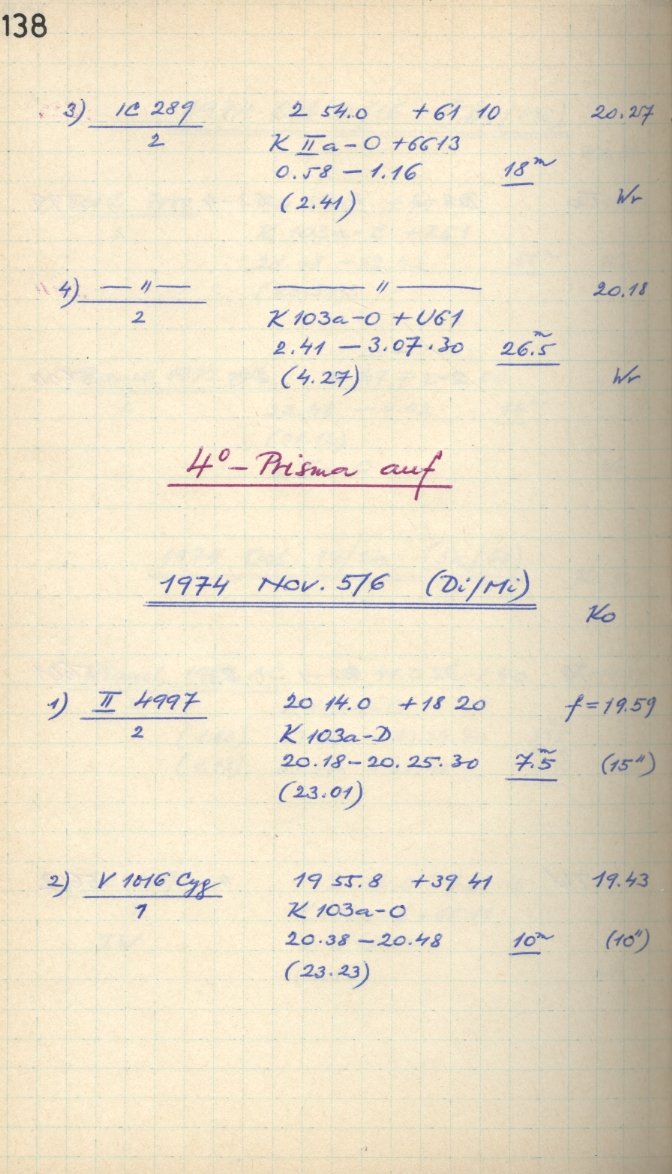 138
3) IC 289 2 54.0 +61 10 20.27
2 K IIa-O +6G13
0.58 – 1.16 18m
(2.41) Wr
4) — " — ——— " ——— 20.18
2 K 103a-O + UG1
2.41 – 3.07.30 26.5m
(4.27) Wr
4° – Prisma auf
1974 Nov. 5/6 (Di/Mi)
Ko
1) II 4997 20 14.0 +18 20 f = 19.59
2 K 103a-D
20.18 – 20.25.30 7.5m (15")
(23.01)
2) V 1016 Cyg 19 55.8 +39 41 19.43
1 K 103a-O
20.38 – 20.48 10m (10")
(23.23)